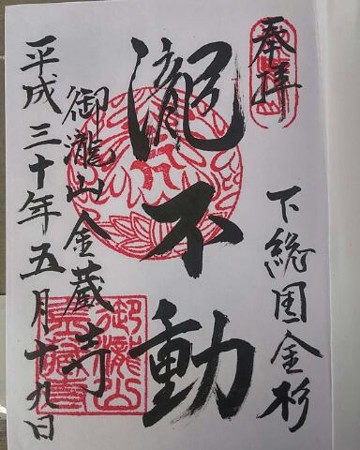 奉拝
下総国金杉
瀧不動
御瀧山金蔵寺
平成三十年五月十九日
御瀧山
金蔵寺